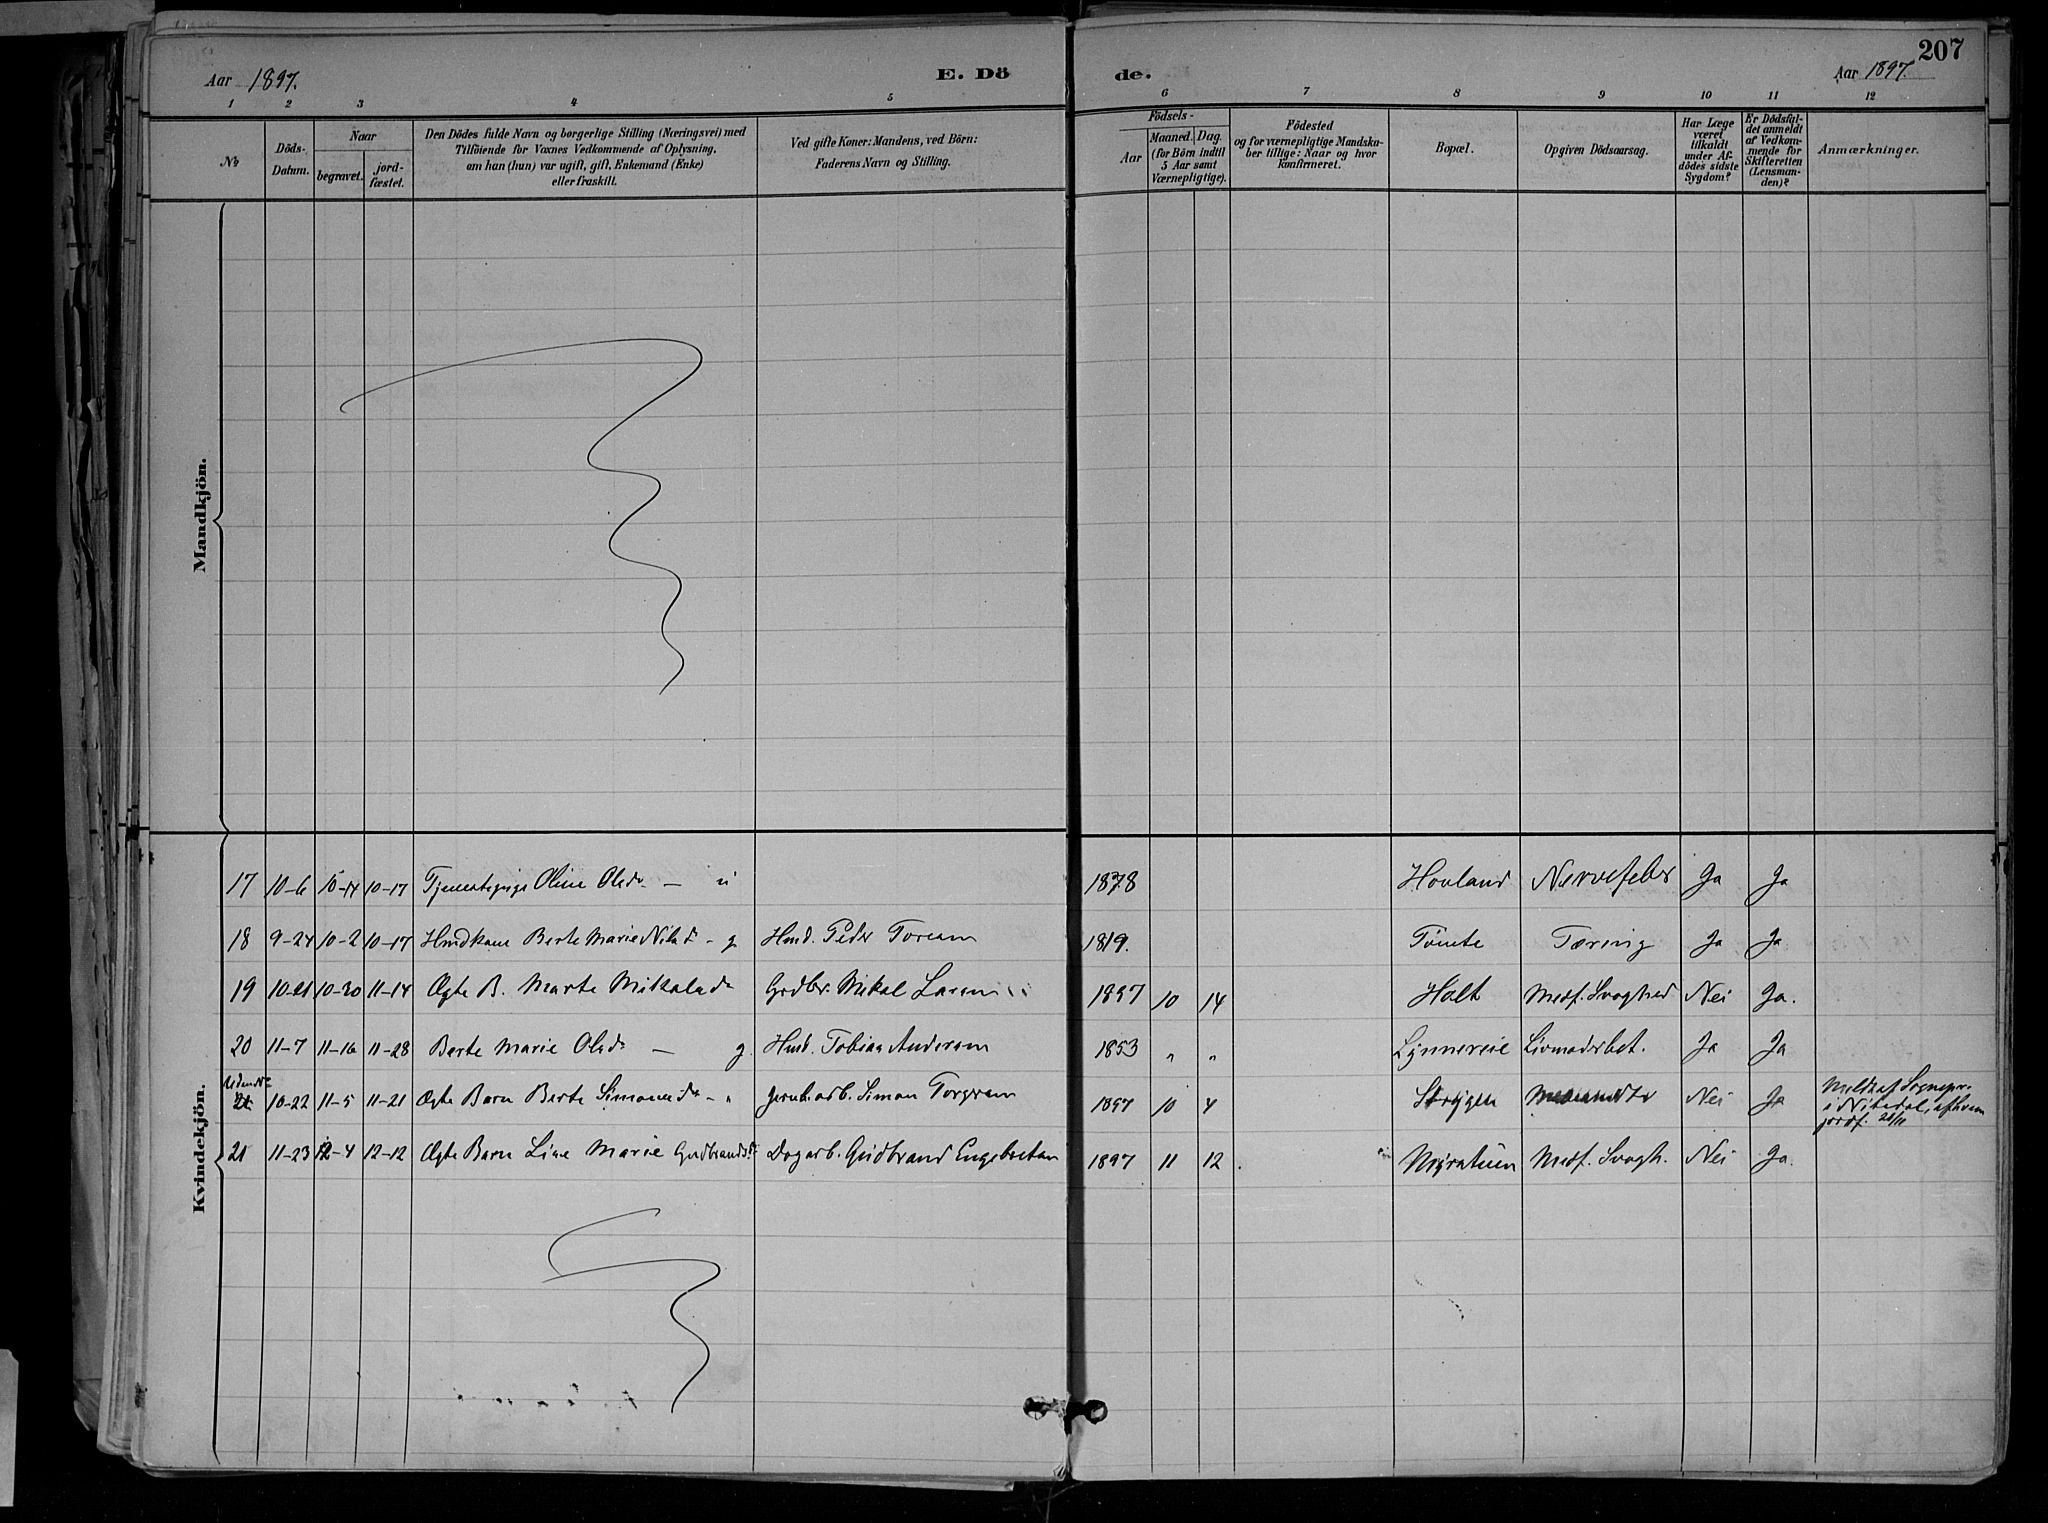 207
Aar 1897.
E. Dö
de.
Aar 1897.
1 2 3 4 5 6 7 8 9 10 11 12
No
Döds-
Datum.
Naar
begravet.
jord-
fæstet.
Den Dödes fulde Navn og borgerlige Stilling (Næringsvei) med
Tilföiende for Voxnes Vedkommende af Oplysning,
om han (hun) var ugift, gift, Enkemand (Enke)
eller fraskilt.
Ved gifte Koner: Mandens, ved Börn:
Faderens Navn og Stilling.
Födsels-
Aar
Maaned. Dag.
(for Börn indtil
5 Aar samt
Værnepligtige).
Födested
og for værnepligtige Mandska-
ber tillige: Naar og hvor
konfirmeret.
Bopæl.
Opgiven Dödsaarsag.
Har Læge
været
tilkaldt
under Af-
dödes sidste
Sygdom?
Er Dödsfal-
det anmeldt
af Vedkom-
mende for
Skifteretten
(Lensman-
den)?
Anmærkninger.
Mandkjön.
Kvindekjön.
17 10-6 10-14 10-17 Tjenestepige Oline Olsdr — u 1878 Hovland Nervefeber Ja Ja
18 9-24 10-2 10-17 Hmdkone Berte Marie Nilsdr - g Hmd. Peder Toresen 1819. Tömte Tæring Ja Ja
19 10-21 10-30 11-14 Ægte B. Marte Mikalsdr Grdbr. Mikal Larsen 1897 10 14 Holt Medf. Svaghed Nei Ja.
20 11-7 11-16 11-28 Berte Marie Olsdr — g. Hmd. Tobias Andersen 1853 " " Lynnereie Livmoderbet. Ja Ja
Uden No
10-22 11-5 11-21 Ægte Barn Berte Simonesdr - " Jernb.arb. Simon Torgersen 1897 10 4 Strygen Nei Ja
i Nitedal, afhvem
jordf. 21/11
21 11-23 12-4 12-12 Ægte Barn Line Marie Gudbrandsdr Dagarb. Gudbrand Engebretsen 1897 11 12. Medf. Svagh. Nei Ja.